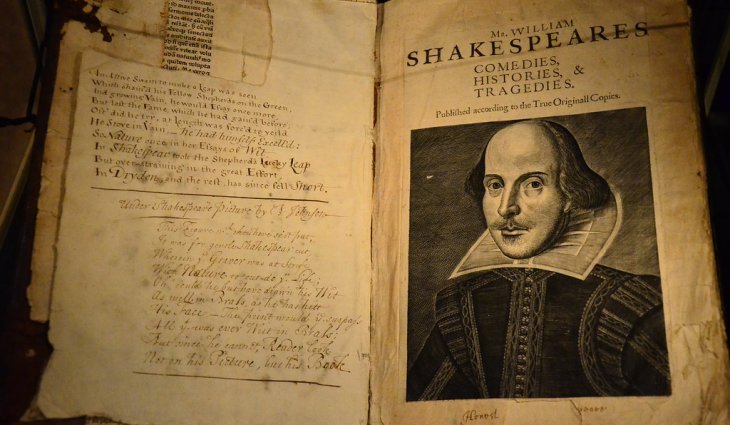 An Active Swain to make a Leap was seen
Which sham'd his Fellow Shepherds on the Green,
And growing Vain, he would Essay once more,
But lost the Fame, which he had gain'd before;
Oft' did he try, at Length was forc'd to yeild
He Strove in Vain — he had himself Excell'd:
So Nature once in her Essays of Wit,
In Shakespear took the Shepherd's Lucky Leap
But over-straining in the great Effort,
In Dryden, and the rest, has since fell Short.
Under Shakespears picture by Johnson
This Figure thou here seest put,
It was for gentle Shakespear cut,
Wherein yᵉ Graver was at Strife
With Nature to outdo yᵉ Life;
Oh, could he but have drawn his Wit
As well in Brass, as he has hitt
His Face — the print would surpass
All yᵗ was ever Writ in Brass;
But since he cannot, Reader look
Not on his Picture, but his Book.
Mr. WILLIAM
SHAKESPEARES
COMEDIES,
HISTORIES, &
TRAGEDIES.
Published according to the True Originall Copies.